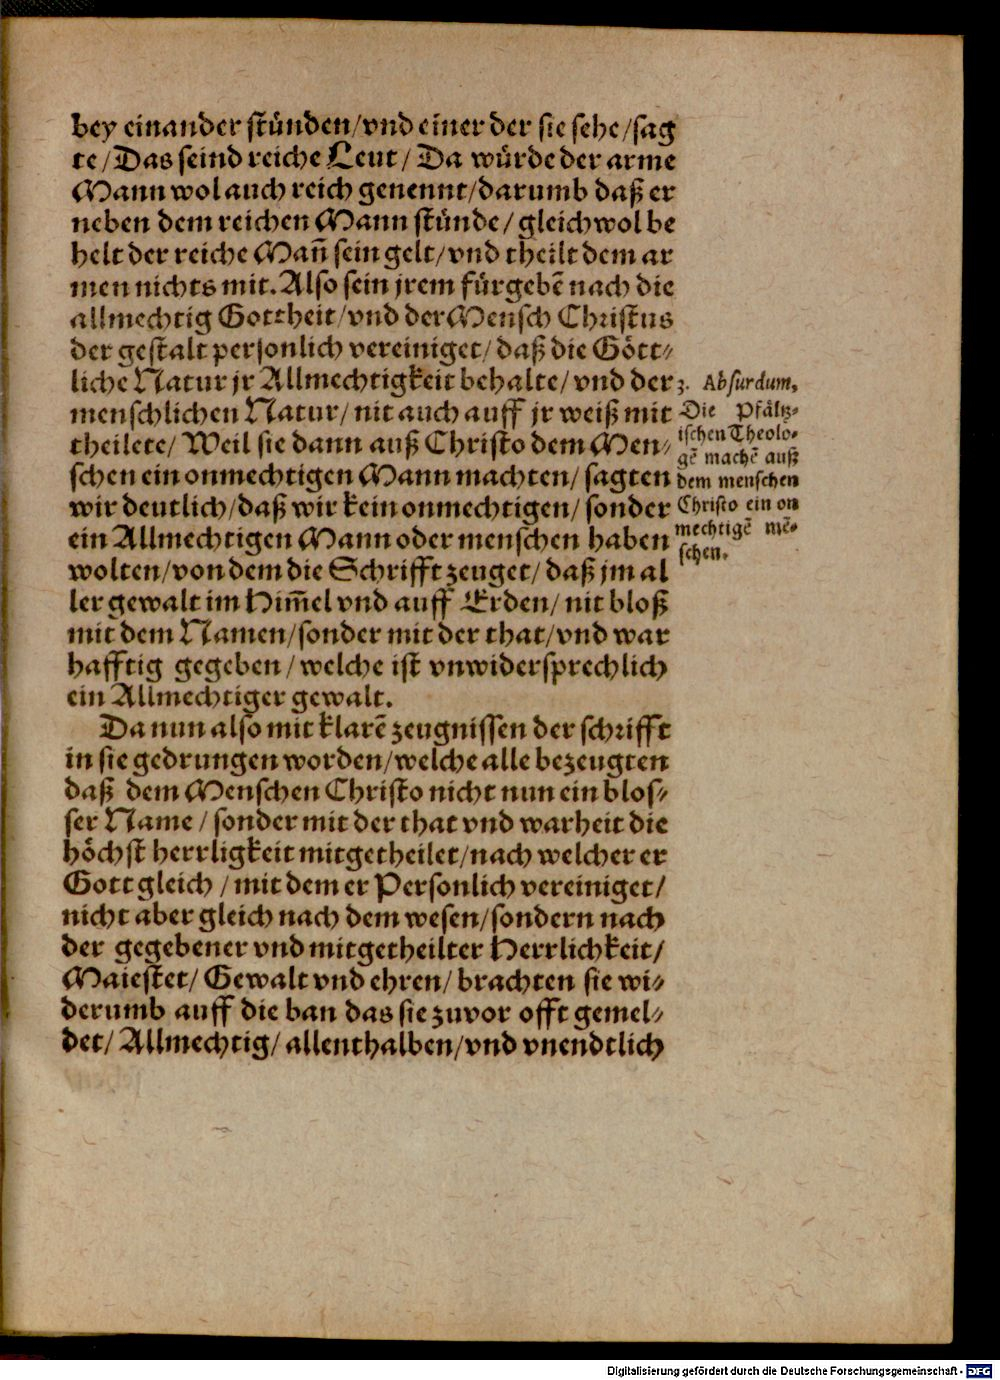 bey einander stünden/vnd einer der sie sehe/sag
te/Das seind reiche Leut/ Da würde der arme
Mann wol auch reich genennt/darumb daß er
neben dem reichen Mann stünde/ gleichwol be
helt der reiche Mañ sein gelt/vnd theilt dem ar
men nichts mit. Also sein jrem fürgebẽ nach die
allmechtig Gottheit/vnd der Mensch Christus
der gestalt personlich vereiniget/ daß die Gött⸗
liche Natur jr Allmechtigkeit behalte/ vnd der
menschlichen Natur/ nit auch auff jr weiß mit
theilete/ Weil sie dann auß Christo dem Men⸗
schen ein onmechtigen Mann machten/ sagten
wir deutlich/daß wir kein onmechtigen/ sonder
ein Allmechtigen Mann oder menschen haben
wolten/von dem die Schrifft zeuget/ daß jm al
ler gewalt im Him̃el vnd auff Erden/ nit bloß
mit dem Namen/sonder mit der that/vnd war
hafftig gegeben/welche ist vnwidersprechlich
ein Allmechtiger gewalt.
3. Absurdum,
Die Pfältz⸗
ischen Theolo⸗
gẽ machẽ auß
dem menschen
Christo ein on
mechtigẽ mẽ⸗
schen.
Da nun also mit klarẽ zeugnissen der schrifft
in sie gedrungen worden/welche alle bezeugten
daß dem Menschen Christo nicht nun ein blos⸗
ser Name/ sonder mit der that vnd warheit die
höchst herrligkeit mitgetheilet/nach welcher er
Gott gleich/ mit dem er Personlich vereiniget/
nicht aber gleich nach dem wesen/sondern nach
der gegebener vnd mitgetheilter Herrlichkeit/
Maiestet/ Gewalt vnd ehren/ brachten sie wi⸗
derumb auff die ban das sie zuvor offt gemel⸗
det/ Allmechtig/ allenthalben/vnd vnendtlich
Digitalisierung gefördert durch die Deutsche Forschungsgemeinschaft - DFG